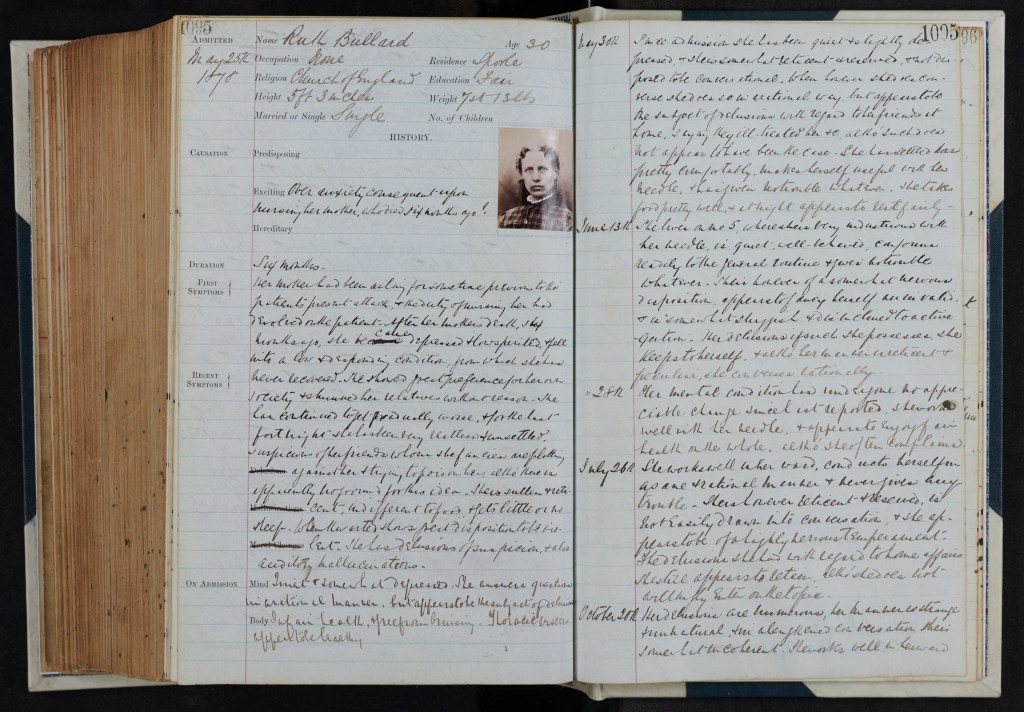 1095
Admitted
May 25th
1878
Name Ruth Bullard Age 30
Occupation None Residence
Religion Church of England Education Fair
Height 5 ft 3 inches Weight 7st 13 lbs
Married or Single Single No. of Children
HISTORY.
Causation
Predisposing
Exciting Over anxiety consequent upon
nursing her mother, who died six months ago.
Hereditary
Duration
Six months.
First
Symptoms
Her mother had been ailing for some time previous to the
patient's present attack, & the duty of nursing her had
devolved on the patient. After her mother's death, six
months ago, she became depressed & low spirited, & fell
into a low & desponding condition, from which she has
never recovered. She showed great preference for her own
Recent
Symptoms
society & shunned her relatives without reason. She
has continued to get gradually worse, & for the last
fortnight she has been very restless & unsettled.
Suspicious of her friends whom she fancies are plotting
against her & trying to poison her, altho' there is
apparently no ground for this idea. She is sullen & reti-
cent, indifferent to food, & gets little or no
sleep. When thwarted shows great disposition to be vio-
lent. She has delusions of suspicion, & also
auditory hallucinations.
On Admission
Mind & somewhat depressed. She answers questions
in a rational manner, but appears to be the subject of delusions
Body In fair health, & free from bruising. Thoracic viscera
appear to be healthy
1095
96
May 30th
Since admission she has been quiet & slightly de-
pressed, & she is somewhat reticent & reserved, & not dis-
posed to be conversational. When however she does con-
verse she does so in a rational way, but appears to be
the subject of delusions with regard to her friends at
home, saying they ill-treated her &c, altho' such does
not appear to have been the case. She has settled down
pretty comfortably, makes herself useful with her
needle, & has given no trouble whatever. She takes
food pretty well, & at night appears to rest fairly.
June 13th
She lives on No 5, where she is very industrious with
her needle, is quiet, well-behaved, conforms
readily to the general routine & gives no trouble
whatever. She is however of a somewhat nervous
disposition, appears to fancy herself an invalid,
& is somewhat sluggish & disinclined to active
exertion. Her delusions if such she possesses, she
keeps to herself, & altho' her manner is reticent &
peculiar, she converses rationally.
" 28th
Her mental condition has undergone no appre-
ciable change since last reported, she works
well with her needle, & appears to enjoy fair
health on the whole, altho' she often complains.
July 26th
She works well in her ward, conducts herself in
a sane & rational manner & never gives any
trouble. She is however reticent & reserved, is
not easily drawn into conversation, & she ap-
pears to be of a highly nervous temperament.
The delusions she had with regard to home affairs
she still appears to retain, altho' she does not
willingly enter on the topic.
October 20th
Her delusions are numerous, her manner is strange
& unnatural & in a lengthened conversation she is
somewhat incoherent. She works well in her ward